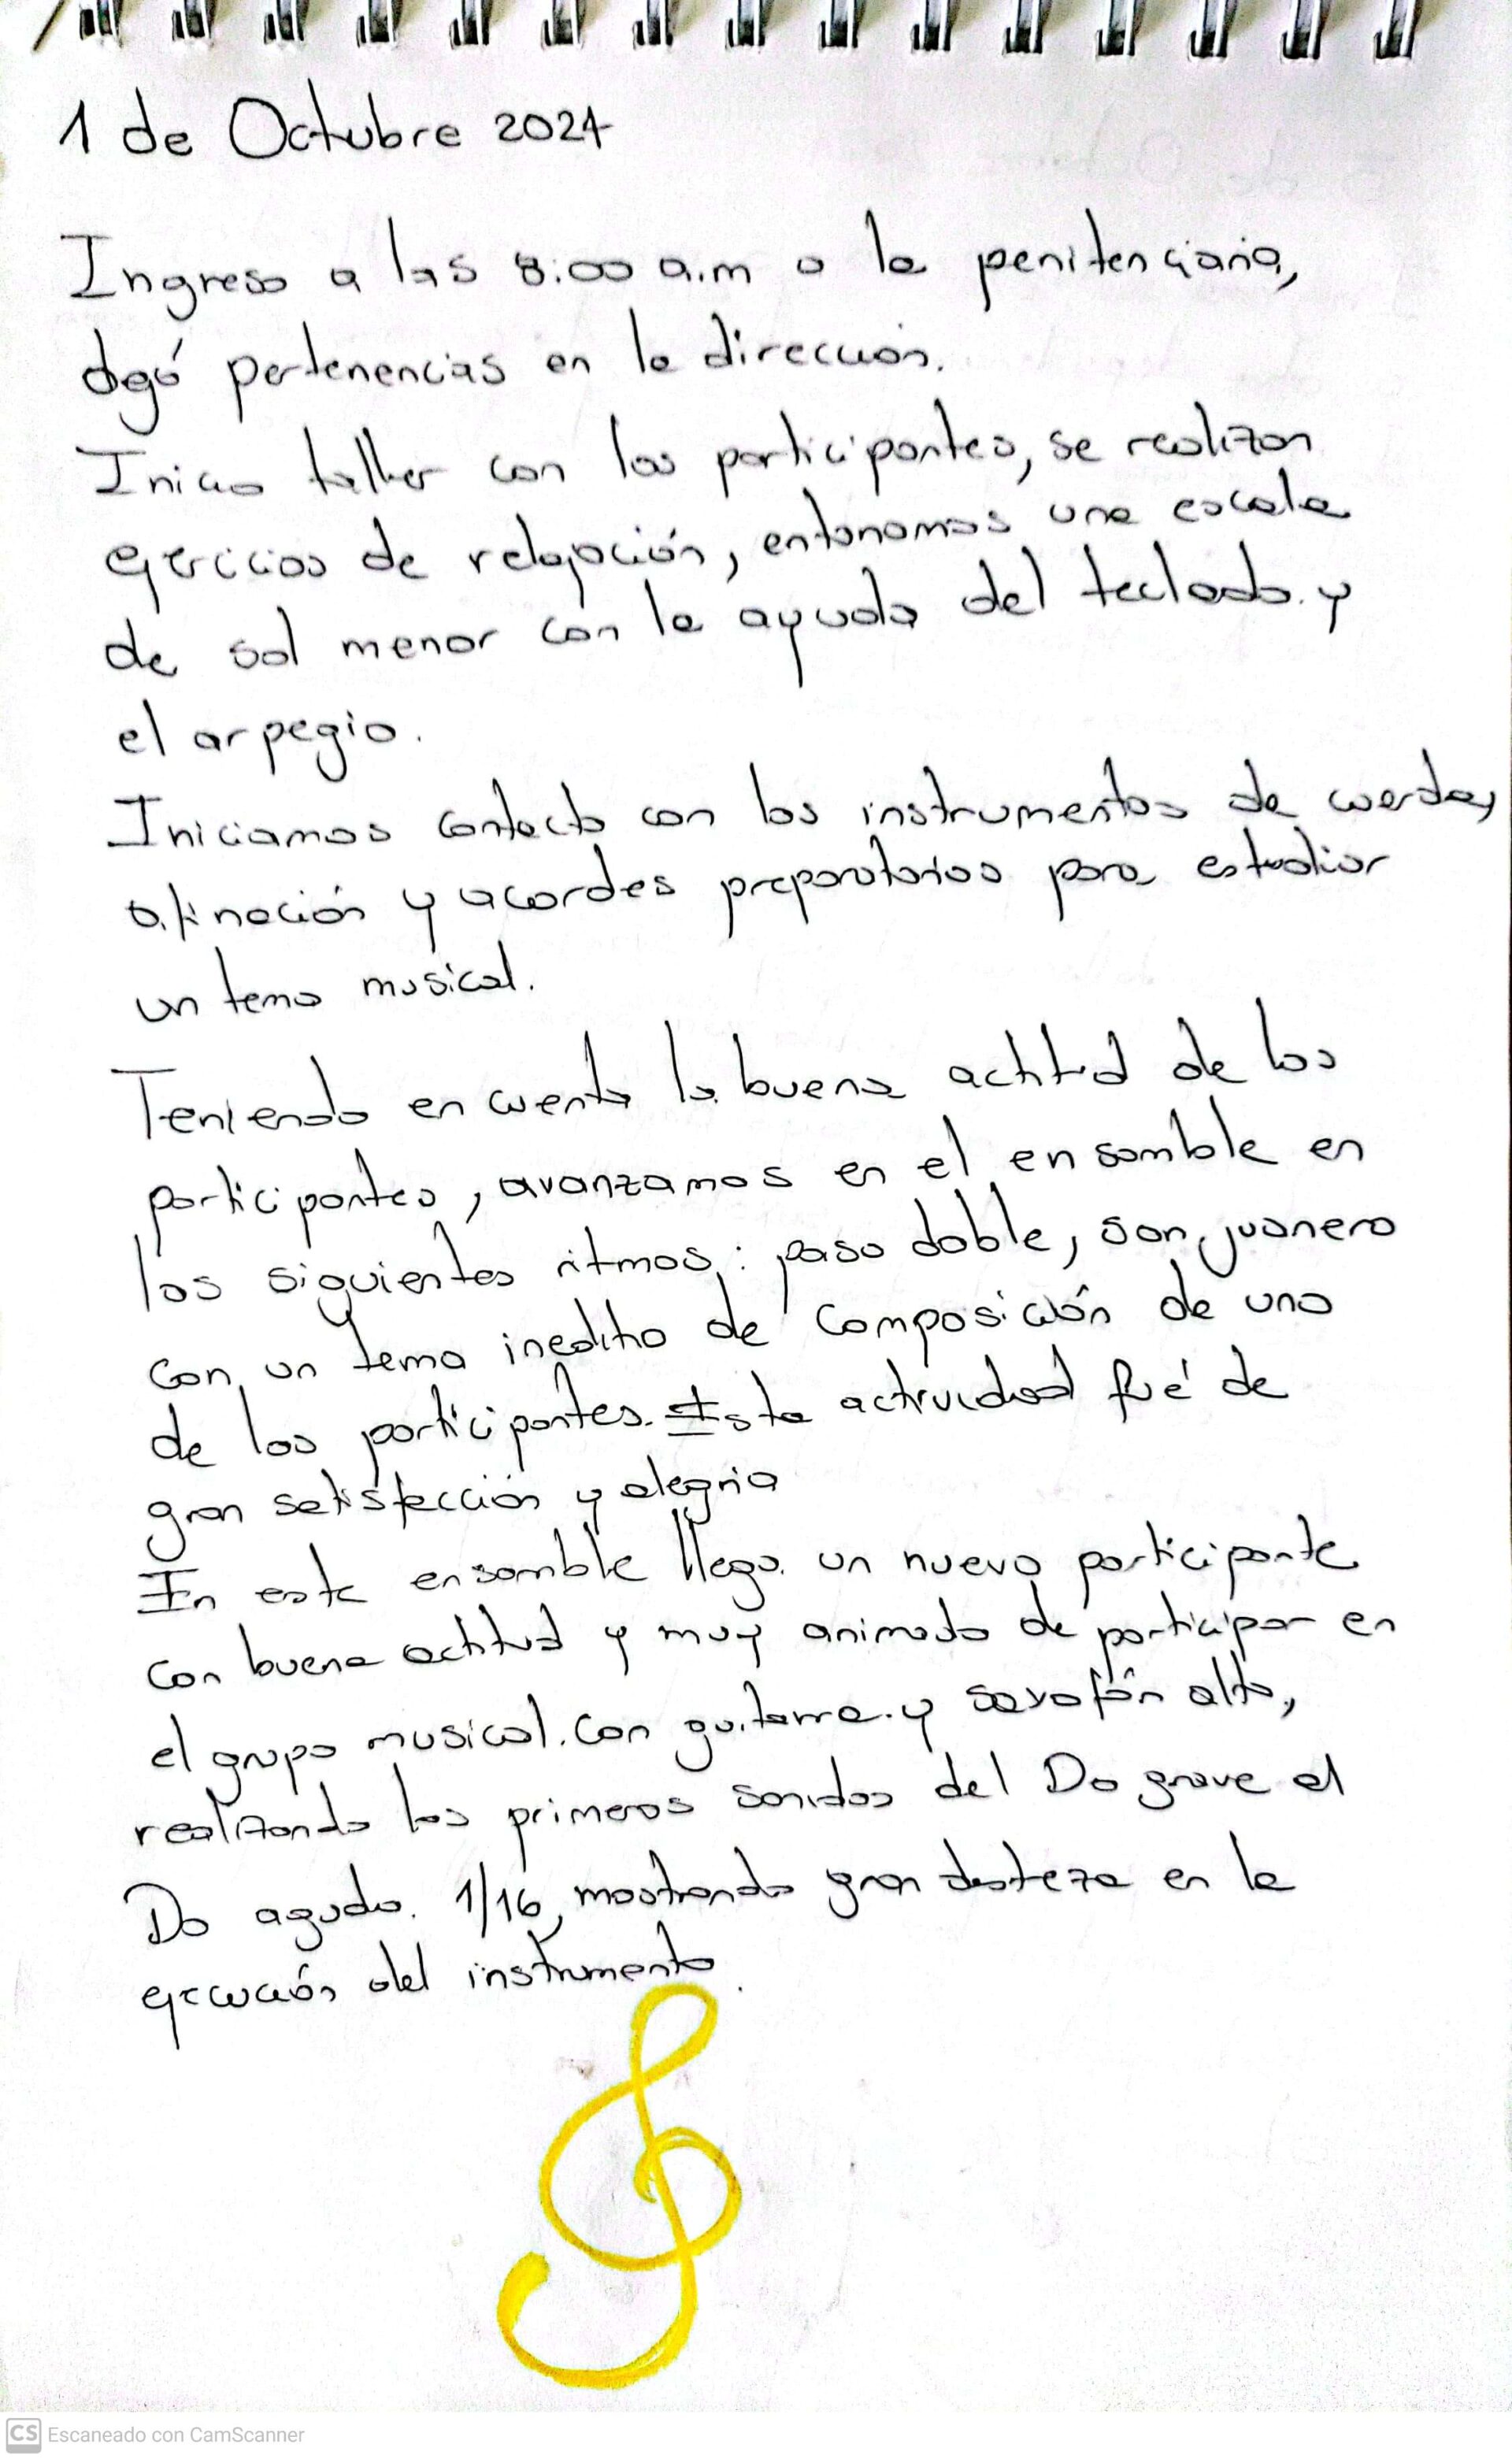 1 de Octubre 2024
Ingreso a las 8:00 a.m a la penitenciaria,
dejó pertenencias en la dirección.
Inicio taller con los participantes, se realizan
ejercicios de relajación, entonamos una escala
de sol menor con la ayuda del teclado. y
el arpegio.
Iniciamos contacto con los instrumentos de cuerda,
afinación y acordes preparatorios para estudiar
un tema musical.
Teniendo en cuenta la buena actitud de los
participantes, avanzamos en el ensamble en
los siguientes ritmos: paso doble, sanjuanero
con un tema inedito de composición de uno
de los participantes. Esta actividad fué de
gran satisfacción y alegria
En este ensamble llego un nuevo participante
con buena actitud y muy animado de participar en
el grupo musical. Con guitarra y saxofón alto,
realizando los primeros sonidos del Do grave al
Do agudo. 1/16, mostrando gran destreza en la
ejecución del instrumento.
CS Escaneado con CamScanner